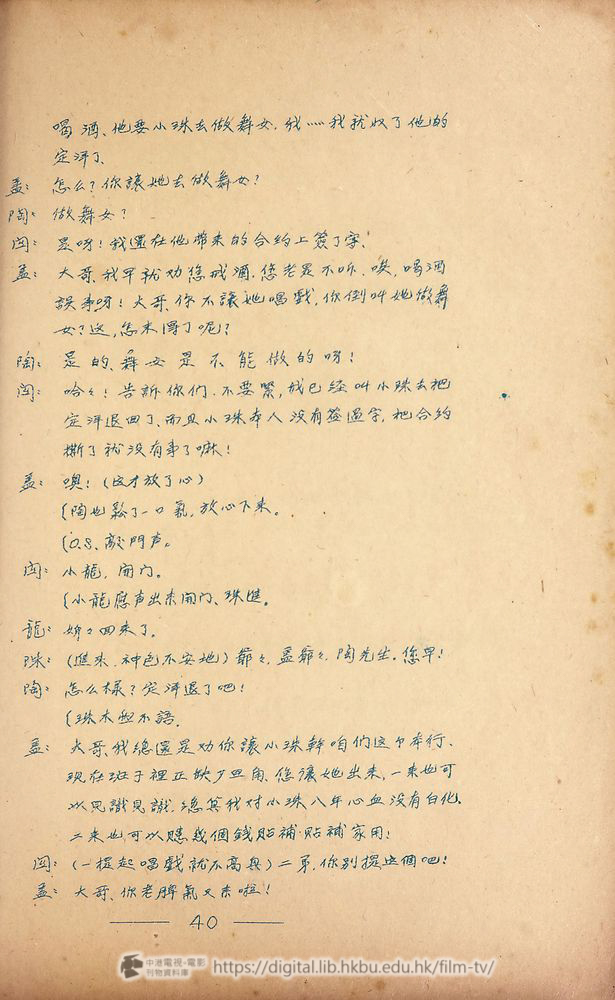 喝酒、他要小珠去做舞女,我……我就收了他的
定洋了、
孟:怎么?你讓她去做舞女?
陶:做舞女?
闵:是呀!我還在他帶来的合约上簽了字、
孟:大哥、我早就劝您戒酒,您老是不听、唉,喝酒
誤事呀!大哥、你不讓她唱戲,你倒叫她做舞
女?这,怎末得了呢?
陶:是的、舞女是不能做的呀!
闵:哈々!告訴你們、不要緊,我已经叫小珠去把
定洋退回了、而且小珠本人没有签過字,把合约
撕了就没有事了嘛!
孟:噢!(这才放了心)
(陶也鬆了一口氣,放心下来。
(O.S.敲門声。
闵:小龍,開门。
(小龍應声出来開门、珠進。
龍:姊々回来了。
珠:(進来,神色不安地)爺々,孟爺々,陶先生,您早!
陶:怎么樣?定洋退了吧!
(珠木然不語。
孟:大哥、我總還是劝你讓小珠幹咱们这个本行、
現在班子裡正缺少旦角、您讓她出来,一来也可
以見識見識,總算我对小珠八年心血没有白化、
二来也可以賺幾個錢貼補貼補家用!
闵:(一提起唱戲就不高興)二弟,你別提這個吧!
孟:大哥、你老脾氣又来啦!
40
中港電視·電影
刊物資料庫
https://digital.lib.hkbu.edu.hk/film-tv/